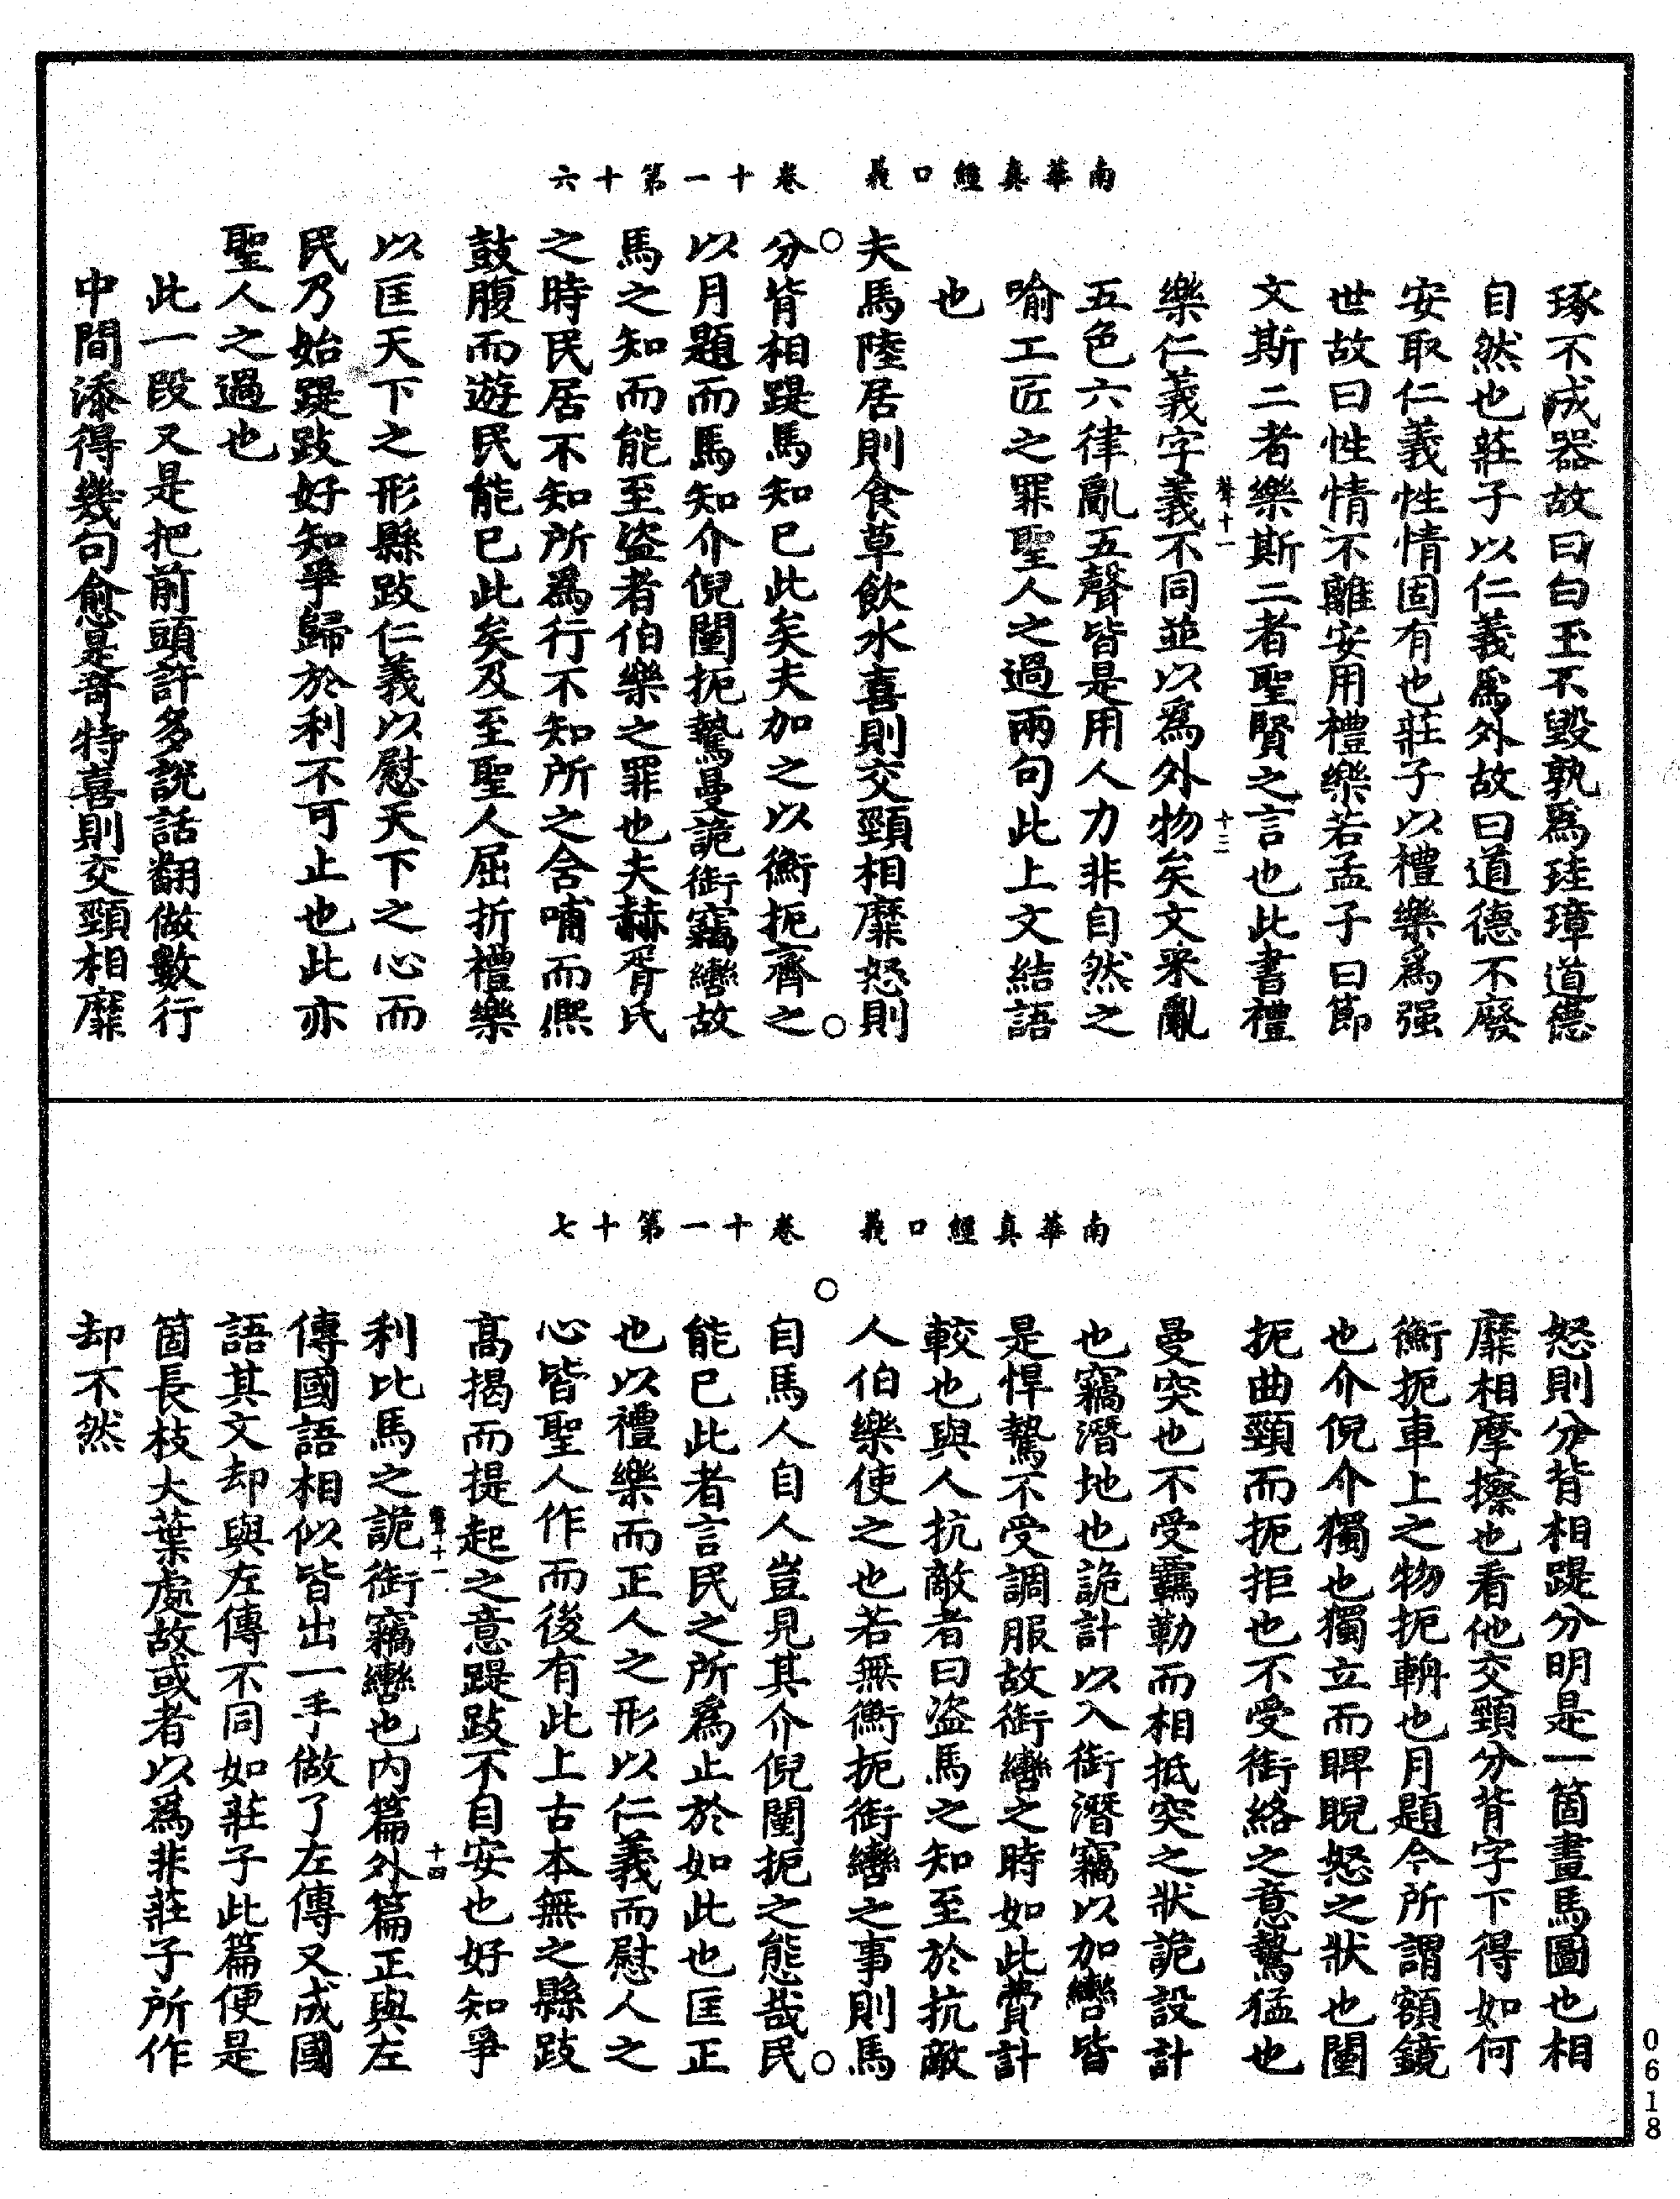 南華真經口義　卷十一第十六
琢不成器故曰白玉不毀孰為珪璋道德
自然也莊子以仁義為外故曰道德不廢
安取仁義性情固有也莊子以禮樂為强
世故曰性情不離安用禮樂若孟子曰節
文斯二者樂斯二者聖賢之言也此書禮
聲十一　十三
樂仁義字義不同並以為外物矣文采亂
五色六律亂五聲皆是用人力非自然之
喻工匠之罪聖人之過兩句此上文結語
也
夫馬陸居則食草飲水喜則交頸相靡怒則
分背相踶馬知已此矣夫加之以衡扼齊之
以月題而馬知介倪闉扼鷙曼詭銜竊轡故
馬之知而能至盜者伯樂之罪也夫赫胥氏
之時民居不知所為行不知所之含哺而熈
鼓腹而遊民能已此矣及至聖人屈折禮樂
以匡天下之形縣跂仁義以慰天下之心而
民乃始踶跂好知爭歸於利不可止也此亦
聖人之過也
此一段又是把前頭許多說話翻做數行
中間添得幾句愈是奇特喜則交頸相靡
南華真經口義　卷十一第十七
怒則分背相踶分明是一箇畫馬圖也相
靡相摩擦也看他交頸分背字下得如何
衡扼車上之物扼輈也月題今所謂額鏡
也介倪介獨也獨立而睥睨怒之狀也闉
扼曲頸而扼拒也不受銜絡之意鷙猛也
曼突也不受羈勒而相抵突之狀詭設計
也竊潛地也詭計以入銜潛竊以加轡皆
是悍鷙不受調服故銜轡之時如此費計
較也與人抗敵者曰盜馬之知至於抗敵
人伯樂使之也若無衡扼銜轡之事則馬
自馬人自人豈見其介倪闉扼之態哉民
能已此者言民之所為止於如此也匡正
也以禮樂而正人之形以仁義而慰人之
心皆聖人作而後有此上古本無之縣跂
高揭而提起之意踶跂不自安也好知爭
聲十一　十四
利比馬之詭銜竊轡也內篇外篇正與左
傳國語相似皆出一手做了左傳又成國
語其文却與左傳不同如莊子此篇便是
箇長枝大葉處故或者以為非莊子所作
却不然
0618